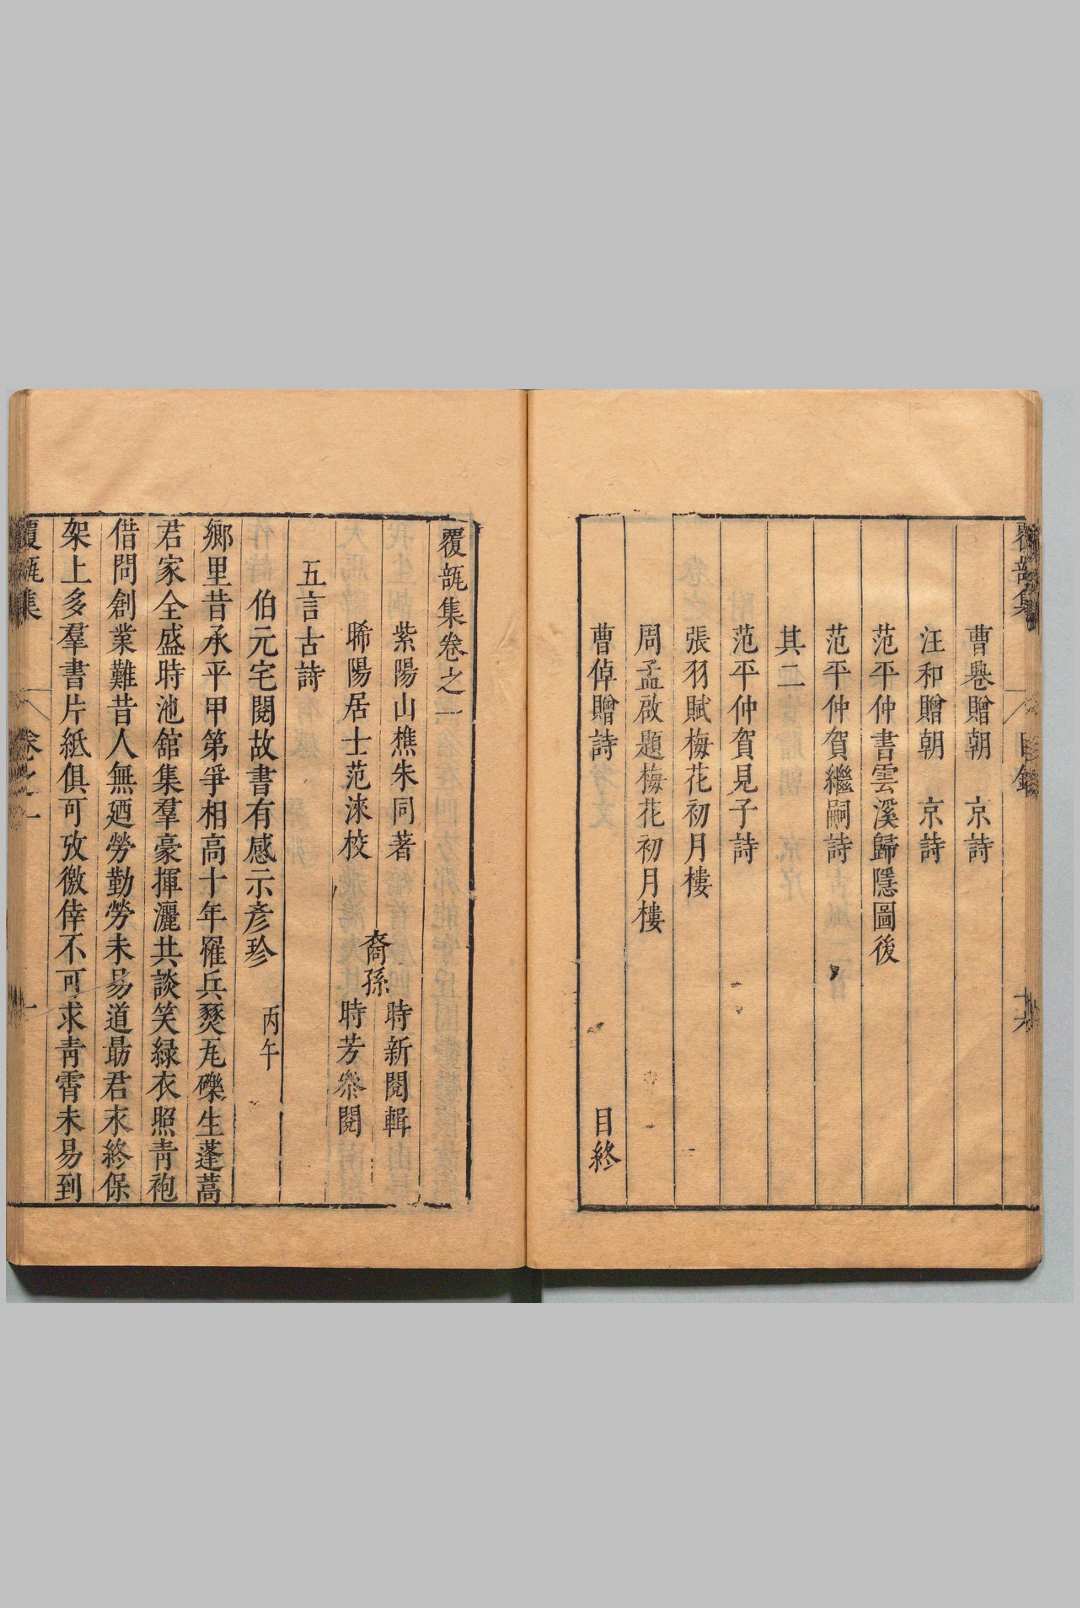 曹㒽贈朝　京詩
汪和贈朝　京詩
范平仲書雲溪歸隱圖後
范平仲賀繼嗣詩
其二
范平仲賀見子詩
張羽賦梅花初月樓
周孟啟題梅花初月樓
曹倬贈詩
目終
覆瓿集卷之一
紫陽山樵朱同著
裔孫
時新閱輯
晞陽居士范淶校
時芳叅閱
五言古詩
伯元宅閱故書有感示彥珍　丙午
鄉里昔承平甲第爭相高十年罹兵燹瓦礫生蓬蒿
君家全盛時池舘集羣豪揮灑共談笑綠衣照靑袍
借問創業難昔人無廼勞勤勞未易道最君末終保
架上多羣書片紙俱可孜徼倖不可求靑霄未易到
覆瓿集
卷之一
一